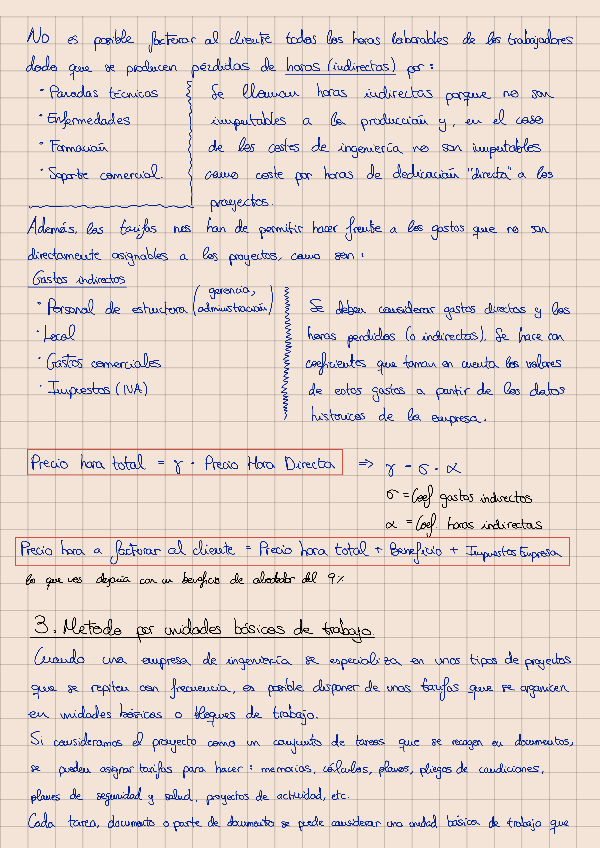 No es posible facturar al cliente todas las horas laborables de los trabajadores
dado que se producen pérdidas de horas (indirectas) por:
· Paradas técnicas
· Enfermedades
· Formación
· Soporte comercial.
Se llaman horas indirectas porque no son
imputables a la producción y, en el caso
de los costes de ingeniería no son imputables
como coste por horas de dedicación "directa" a los
proyectos.
Además, las tarifas nos han de permitir hacer frente a los gastos que no son
directamente asignables a los proyectos, como son:
Gastos indirectos
· Personal de estructura (gerencia, administración)
· Local
· Gastos comerciales
· Impuestos (IVA)
Se deben considerar gastos directos y las
horas perdidas (o indirectas). Se hace con
coeficientes que toman en cuenta los valores
de estos gastos a partir de los datos
historicos de la empresa.
Precio hora total = γ · Precio Hora Directa ⇒ γ = σ · α
σ = Coef gastos indirectos
α = Coef. horas indirectas
Precio hora a facturar al cliente = Precio hora total + Beneficio + Impuestos Empresa
lo que nos dejaría con un beneficio de alrededor del 9%
3. Metodo por unidades básicas de trabajo.
Cuando una empresa de ingeniería se especializa en unos tipos de proyectos
que se repiten con frecuencia, es posible disponer de unas tarifas que se organicen
en unidades básicas o bloques de trabajo.
Si consideramos el proyecto como un conjunto de tareas que se recogen en documentos,
se pueden asignar tarifas para hacer: memorias, cálculos, planos, pliegos de condiciones,
planes de seguridad y salud, proyectos de actividad, etc.
Cada tarea, documento o parte de documento se puede considerar una unidad básica de trabajo que